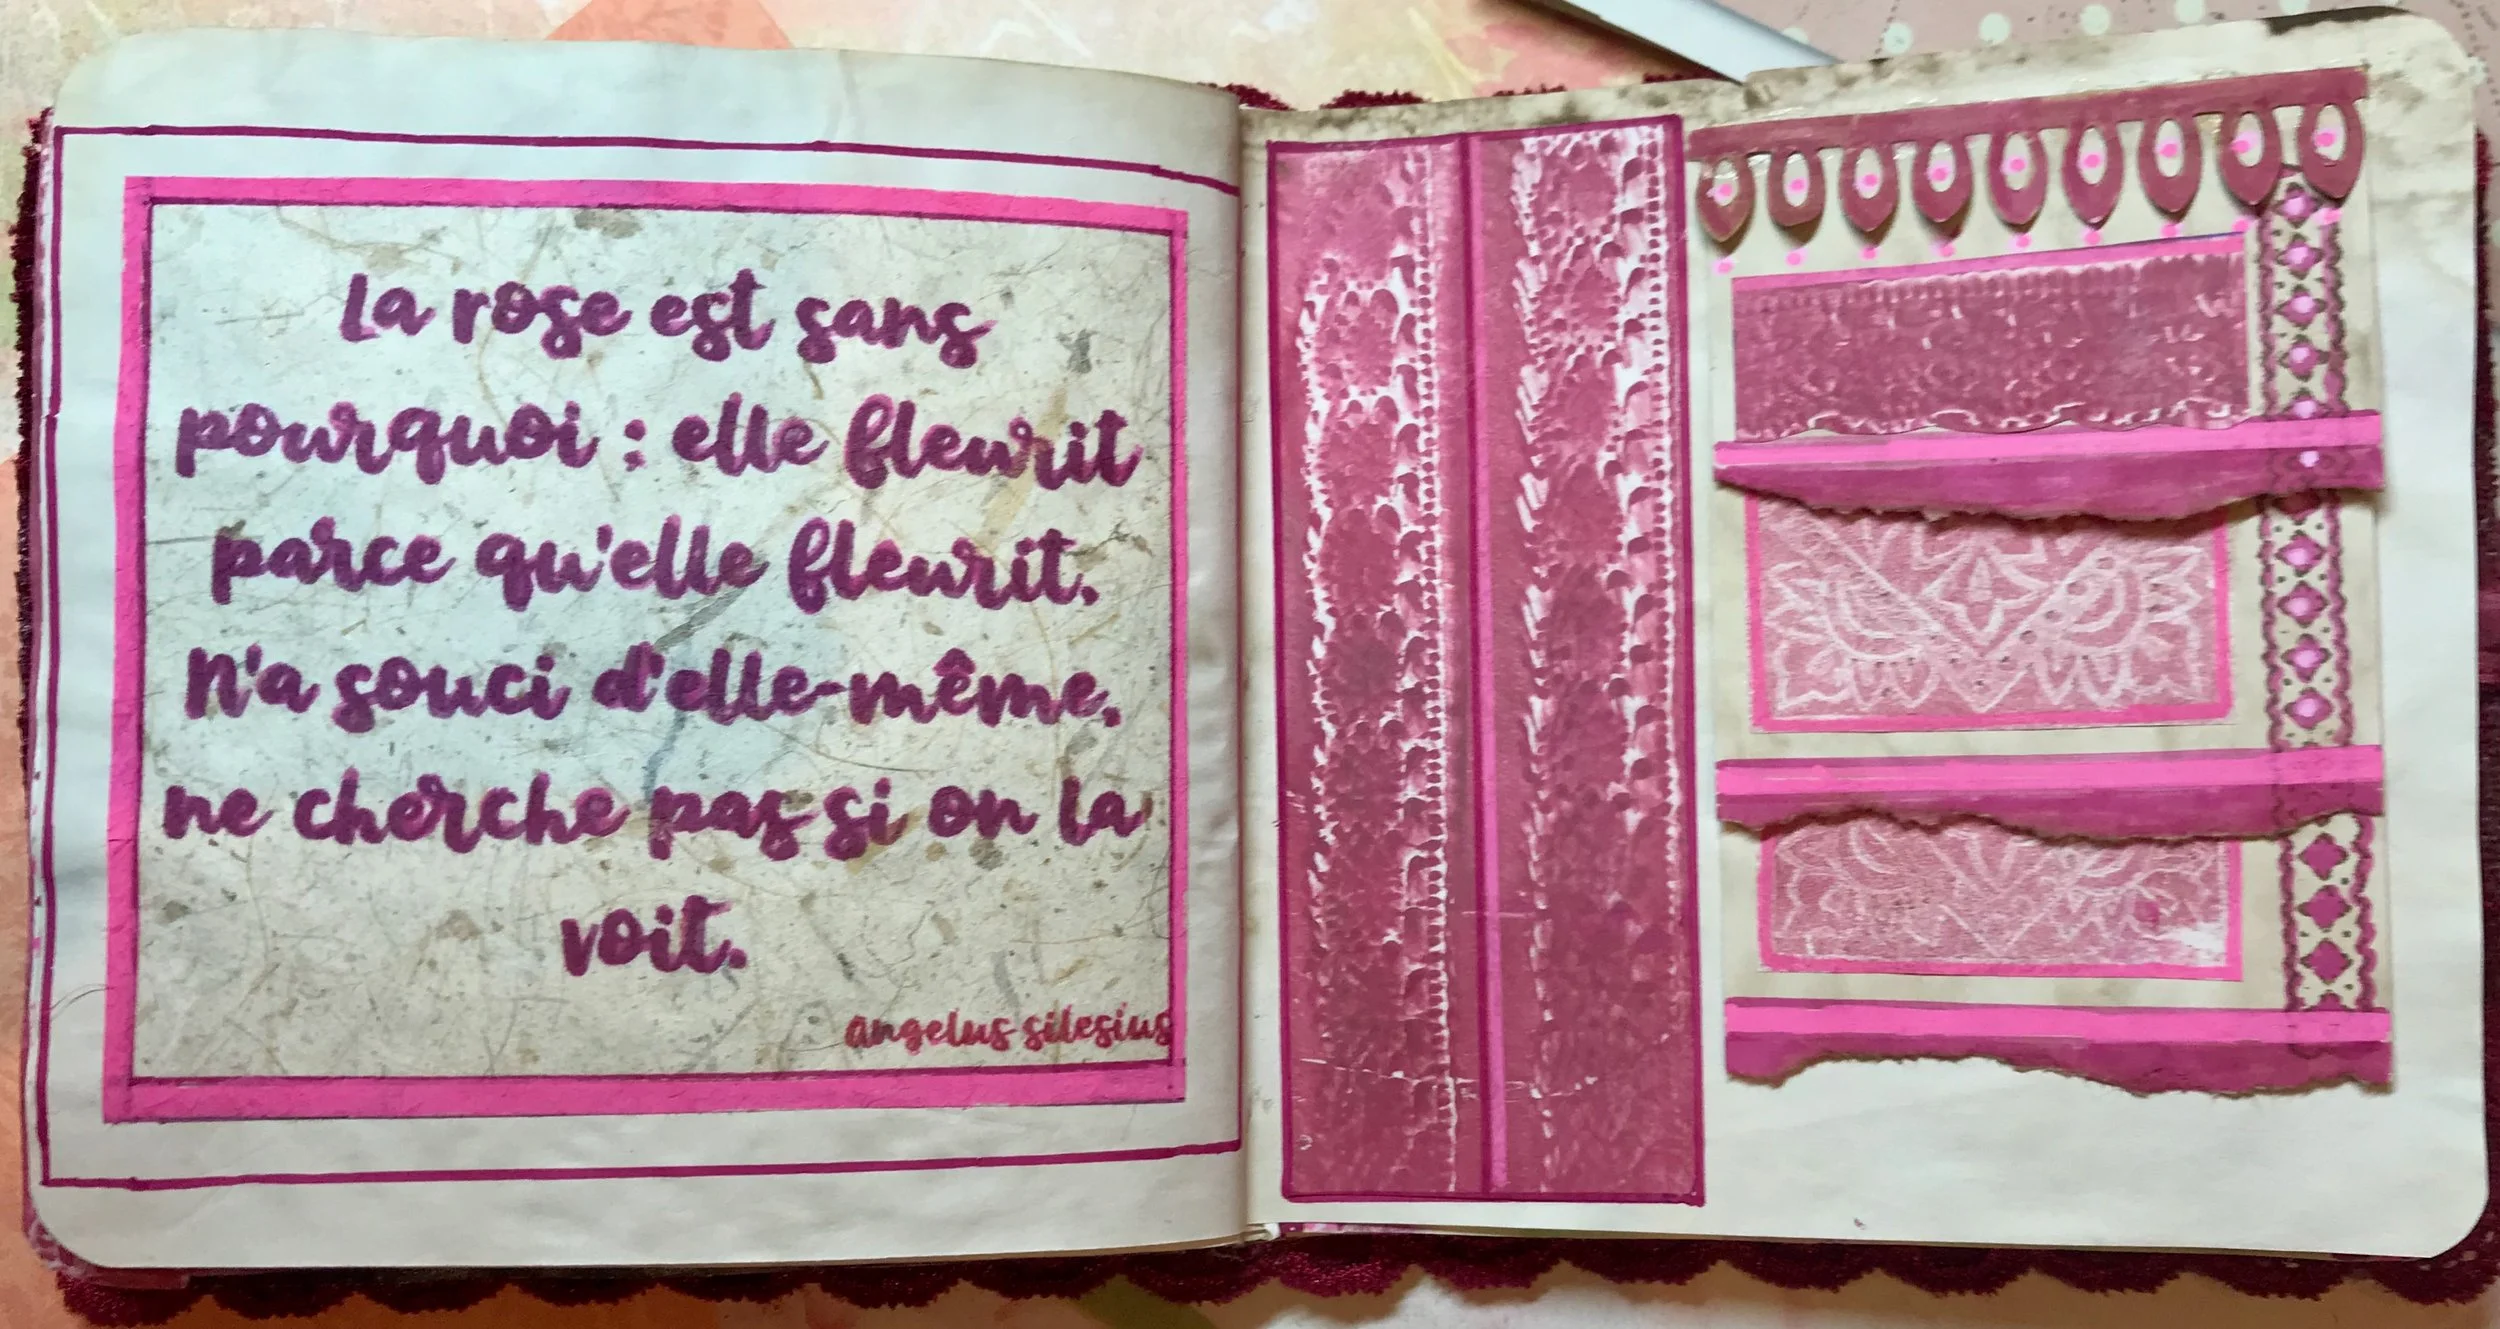 La rose est sans
pourquoi : elle fleurit
parce qu'elle fleurit.
N'a souci d'elle-même,
ne cherche pas si on la
voit.
angelus silesius